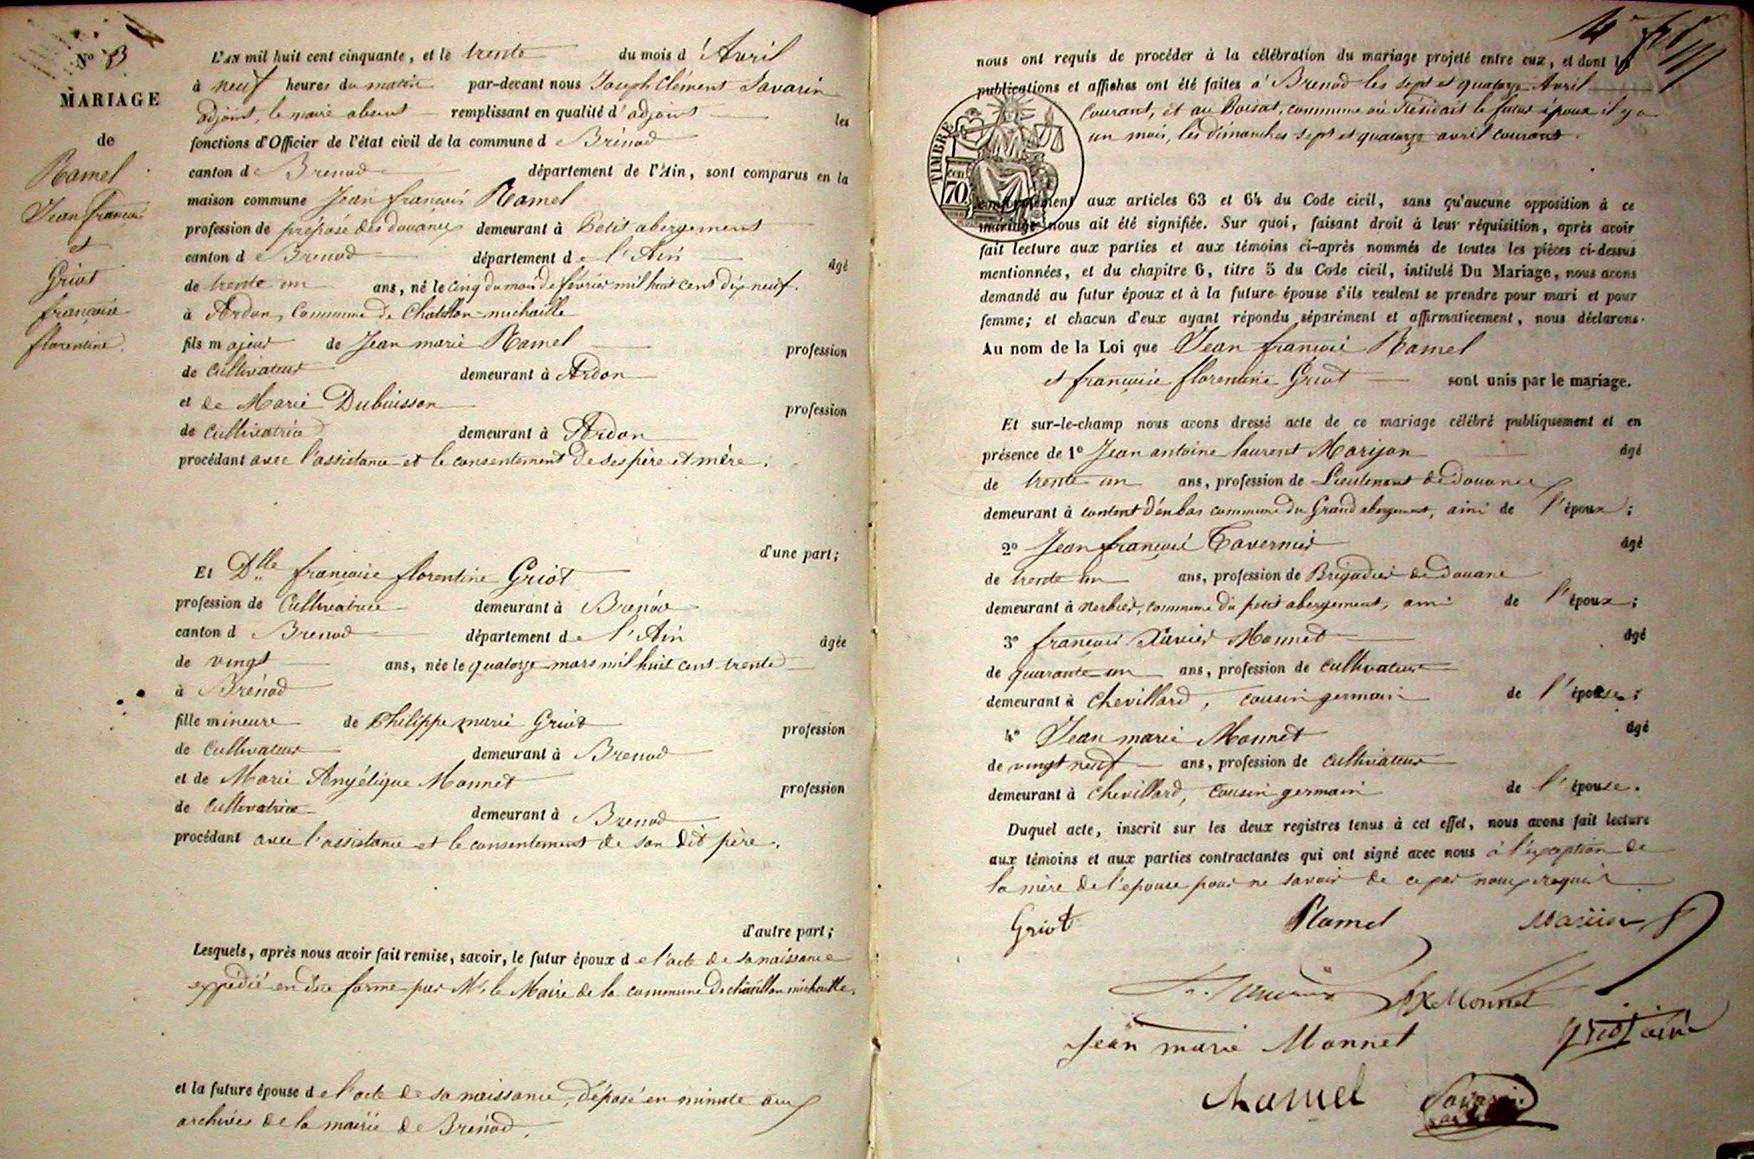 N° 3
MARIAGE
de
Ramel
Jean françois
et
Griot
françoise
florentine.
L'AN mil huit cent cinquante, et le trente du mois d'Avril
à neuf heures du matin par-devant nous Joseph Clément Savarin
adjoint, le maire absent remplissant en qualité d'adjoint les
fonctions d'Officier de l'état civil de la commune d Brénod
canton d Brenod département de l'Ain, sont comparus en la
maison commune Jean françois Ramel
profession de préposé des douanes demeurant à Petit abergement
canton d e Brenod département d e l'Ain âgé
de trente un ans, né le cinq du mois de février mil huit cent dix neuf.
à Ardon, Commune de Chatillon-michaille
fils majeur de Jean marie Ramel profession
de cultivateur demeurant à Ardon
et de Marie Dubuisson profession
de cultivatrice demeurant à Ardon
procédant avec l'assistance et le consentement de ses père et mère.
d'une part;
Et Dlle françoise florentine Griot
profession de Cultivatrice demeurant à Brénod
canton d Brenod département d e l'Ain âgée
de vingt ans, née le quatorze mars mil huit cent trente
à Brénod
fille mineure de Philippe marie Griot profession
de cultivateur demeurant à Brenod
et de Marie Angélique Monnet profession
de cultivatrice demeurant à Brenod
procédant avec l'assistance et le consentement de son dit père.
d'autre part;
Lesquels, après nous avoir fait remise, savoir, le futur époux d e l'acte de sa naissance
expédié en due forme par Mr. le Maire de la commune de chatillon michaille.
et la future épouse d e l'acte de sa naissance, déposé en minute aux
archives de la mairie de Brénod.
nous ont requis de procéder à la célébration du mariage projeté entre eux, et dont les
publications et affiches ont été faites à Brenod les sept et quatorze Avril
courant, et au Poizat, commune où résidait le futur époux il y a
un mois, les dimanches sept et quatorze avril courant.
TIMBRE
70 cent
conformément aux articles 63 et 64 du Code civil, sans qu'aucune opposition à ce
mariage nous ait été signifiée. Sur quoi, faisant droit à leur réquisition, après avoir
fait lecture aux parties et aux témoins ci-après nommés de toutes les pièces ci-dessus
mentionnées, et du chapitre 6, titre 5 du Code civil, intitulé Du Mariage, nous avons
demandé au futur époux et à la future épouse s'ils veulent se prendre pour mari et pour
femme; et chacun d'eux ayant répondu séparément et affirmativement, nous déclarons
Au nom de la Loi que Jean françois Ramel
et françoise florentine Griot sont unis par le mariage.
Et sur-le-champ nous avons dressé acte de ce mariage célébré publiquement et en
présence de 1° Jean antoine laurent Marijon âgé
de trente un ans, profession de Lieutenant de douanes
demeurant à d'enbas commune du Grand abergement, ami de l'époux;
2° Jean françois Tavernier âgé
de trente un ans, profession de Brigadier de douane
demeurant à nerbier, commune du petit abergement, ami de l'époux;
3° françois Xavier Monnet âgé
de quarante un ans, profession de cultivateur
demeurant à chevillard, cousin germain de l'épouse;
4° Jean marie Monnet âgé
de vingt neuf ans, profession de cultivateur
demeurant à chevillard, cousin germain de l'épouse.
Duquel acte, inscrit sur les deux registres tenus à cet effet, nous avons fait lecture
aux témoins et aux parties contractantes qui ont signé avec nous à l'exception de
la mère de l'épouse pour ne savoir de ce par nous requise.
Griot Ramel
fx Monnet
Jean marie Monnet Griot ainé
Ramel Savarin